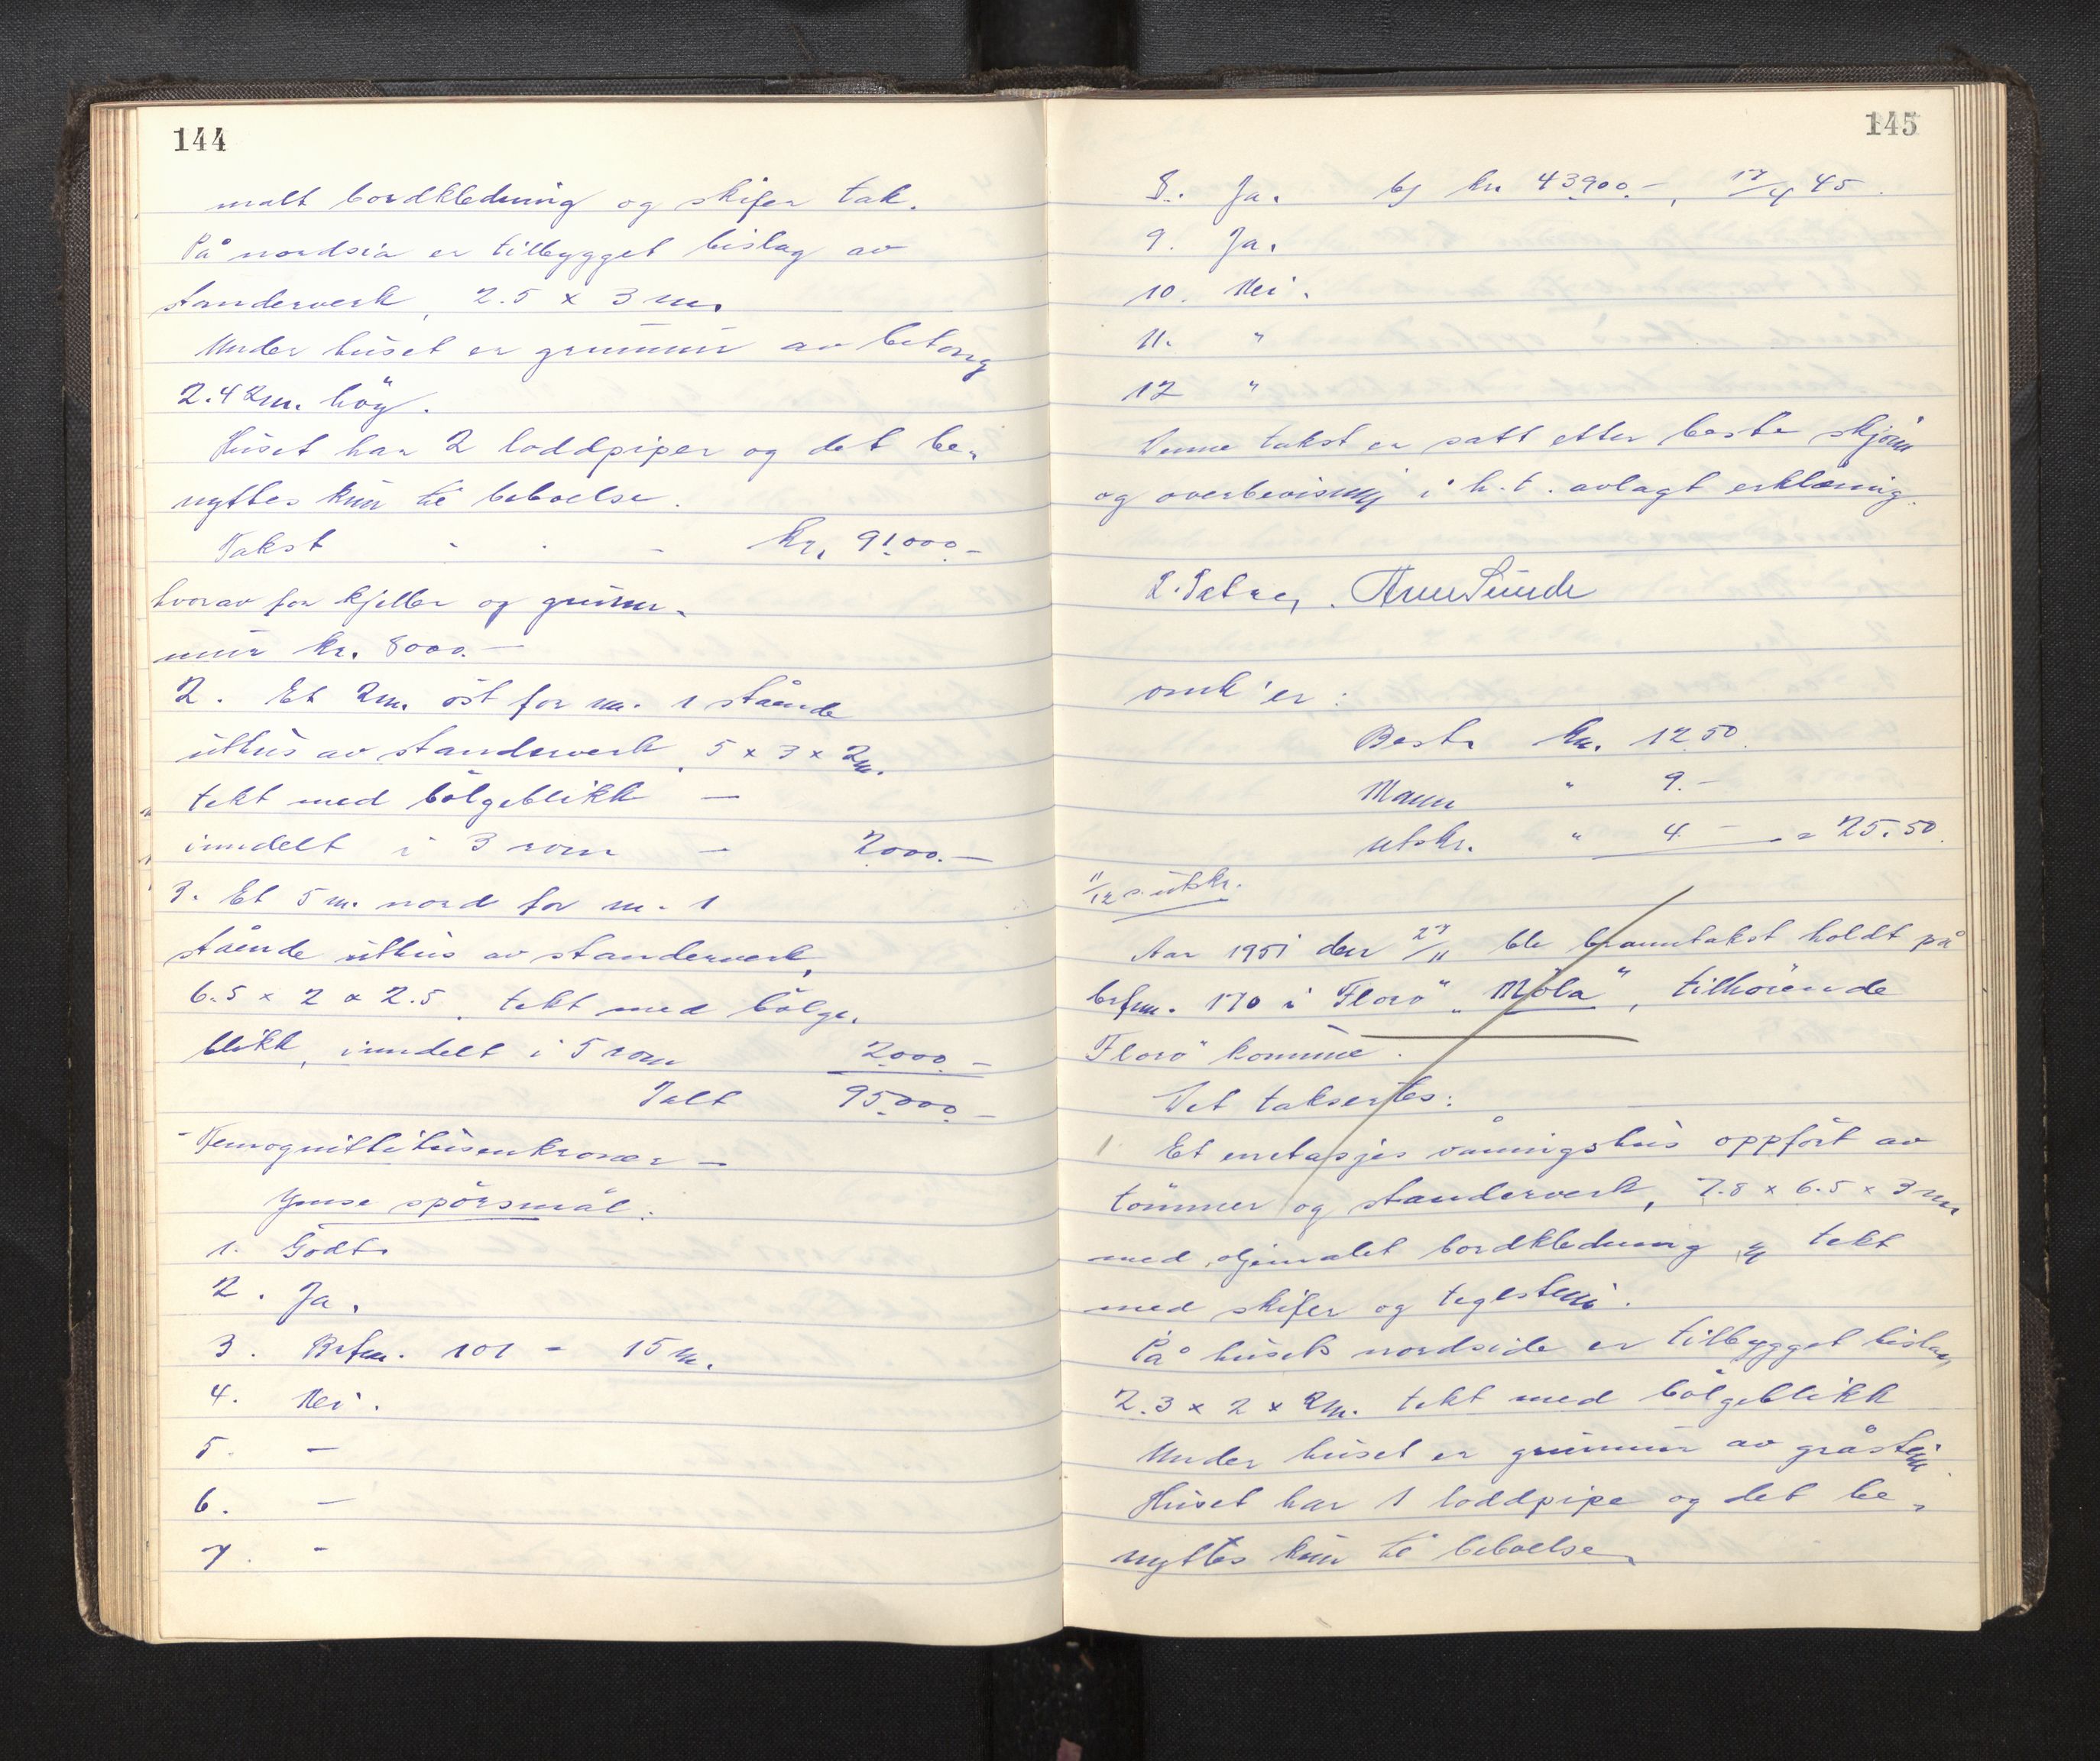 144
malt bordkledning og skifer tak.
På nordsia er tilbygget bislag av
standerverk, 2.5 x 3 m.
Under huset er grunnmur av betong
2.42m. høg.
Huset har 2 loddpiper og det be-
nyttes kun til beboelse.
Takst - - - kr. 91.000.-
hvorav for kjeller og grunn-
mur kr. 8000.-
2. Et 2m. öst for nr. 1 stående
uthus av standerverk, 5 x 3 x 2m.
tekt med bölgeblikk -
inndelt i 3 rom - 2000.-
3. Et 5 m. nord for nr. 1
stående uthus av standerverk,
6.5 x 2 x 2.5, tekt med bölge-
blikk, inndelt i 5 rom 2000.-
Ialt 95.000.-
- Femognittitusenkroner -
Ymse spörsmål:
1. Godt.
2. Ja.
3. Brfnr. 101 - 15 m.
4. Nei.
5. -
6. -
7. -
145
8. Ja. kr 43900.-, 17/4 45.
9. Ja.
10. Nei.
11. "
12 "
Denne takst er satt etter beste skjönn
og overbevisning i h.t. avlagt erklæring.
Arne Sunde
omk'er:
Bestr. kr. 12.50.
Mann " 9.-
utskr. " 4 - = 25.50.
11/12 s. utskr.
Aar 1951 den 27/11 ble branntakst holdt på
brfnr. 170 i Florö "Möla", tilhörende
Florö kommune.
Det takseres:
1 Et enetasjes våningshus oppfört av
tömmer og standerverk, 7.8 x 6.5 x 3 m
med oljemalet bordkledning og tekt
med skifer og teglstein.
På husets nordside er tilbygget bislag
2.3 x 2 x 2m. tekt med bölgeblikk
Under huset er grunnmur av gråstein.
Huset har 1 loddpipe og det be-
nyttes kun til beboelse.